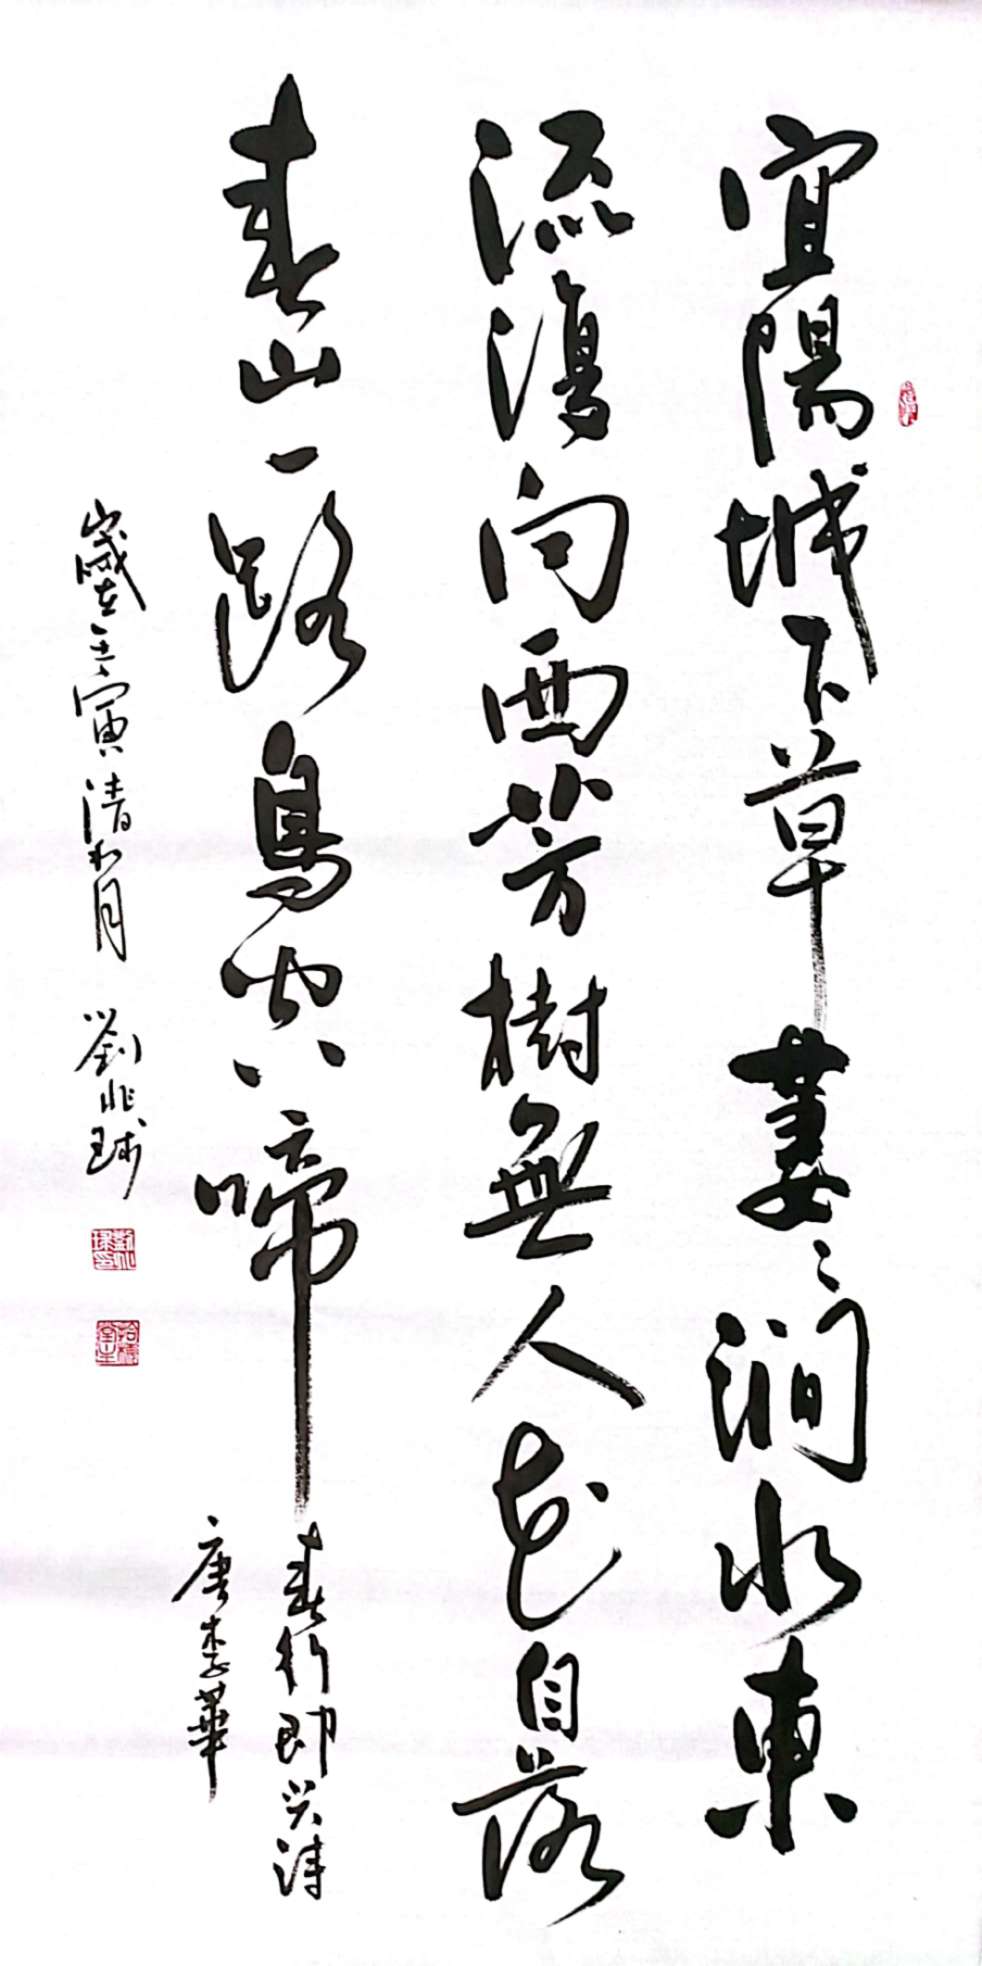 宜陽城下草萋〻澗水東
流復向西芳樹無人花自落
春山一路鳥空啼
春行即兴诗
唐李華
歲在壬寅清和月 劉兆球